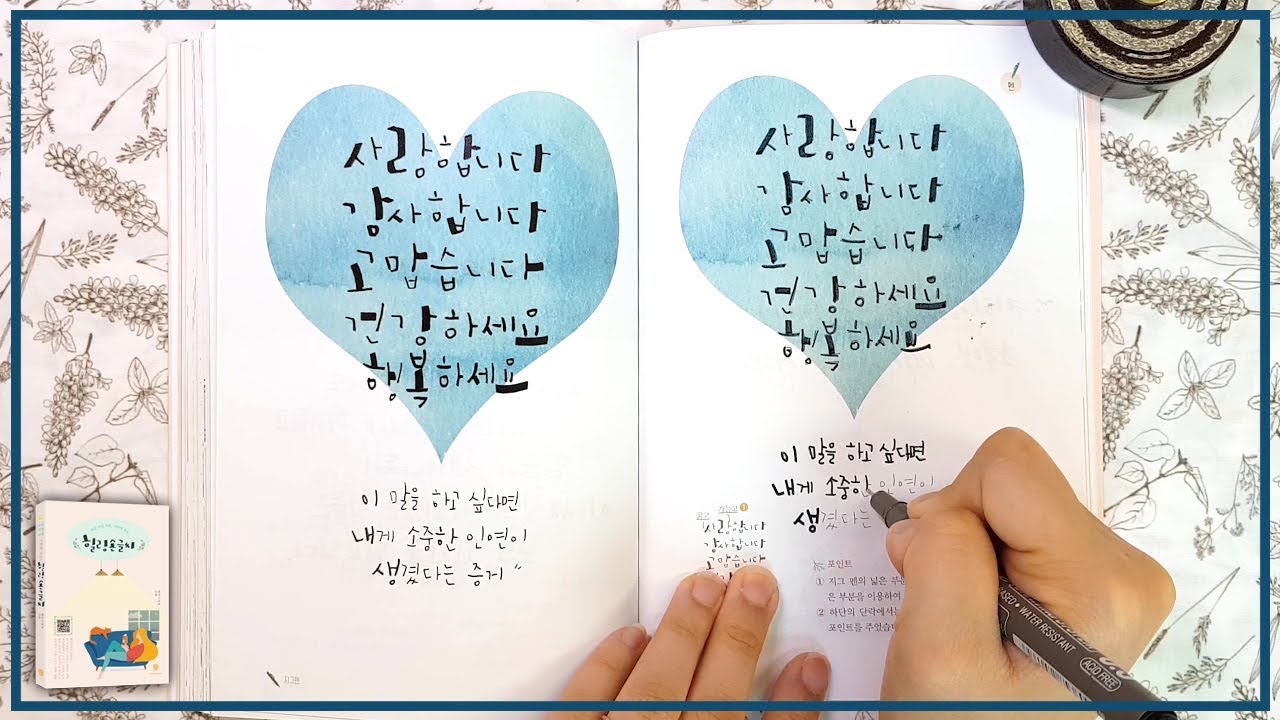 사랑합니다
감사합니다
고맙습니다
건강하세요
행복하세요
이 말을 하고 싶다면
내게 소중한 인연이
생겼다는 증거"
지그펜
펜
사랑합니다
감사합니다
고맙습니다
건강하세요
행복하세요
이 말을 하고 싶다면
내게 소중한 인연이
생겼다는
굵고 가늘고 1
사랑합니다
감사합니다
고맙습니다
포인트
① 지그 펜의 넓은 부분
은 부분을 이용하여
② 하단의 단락에서는
포인트를 주었습니
WATER RESISTANT
ACID FREE
힐링손글씨